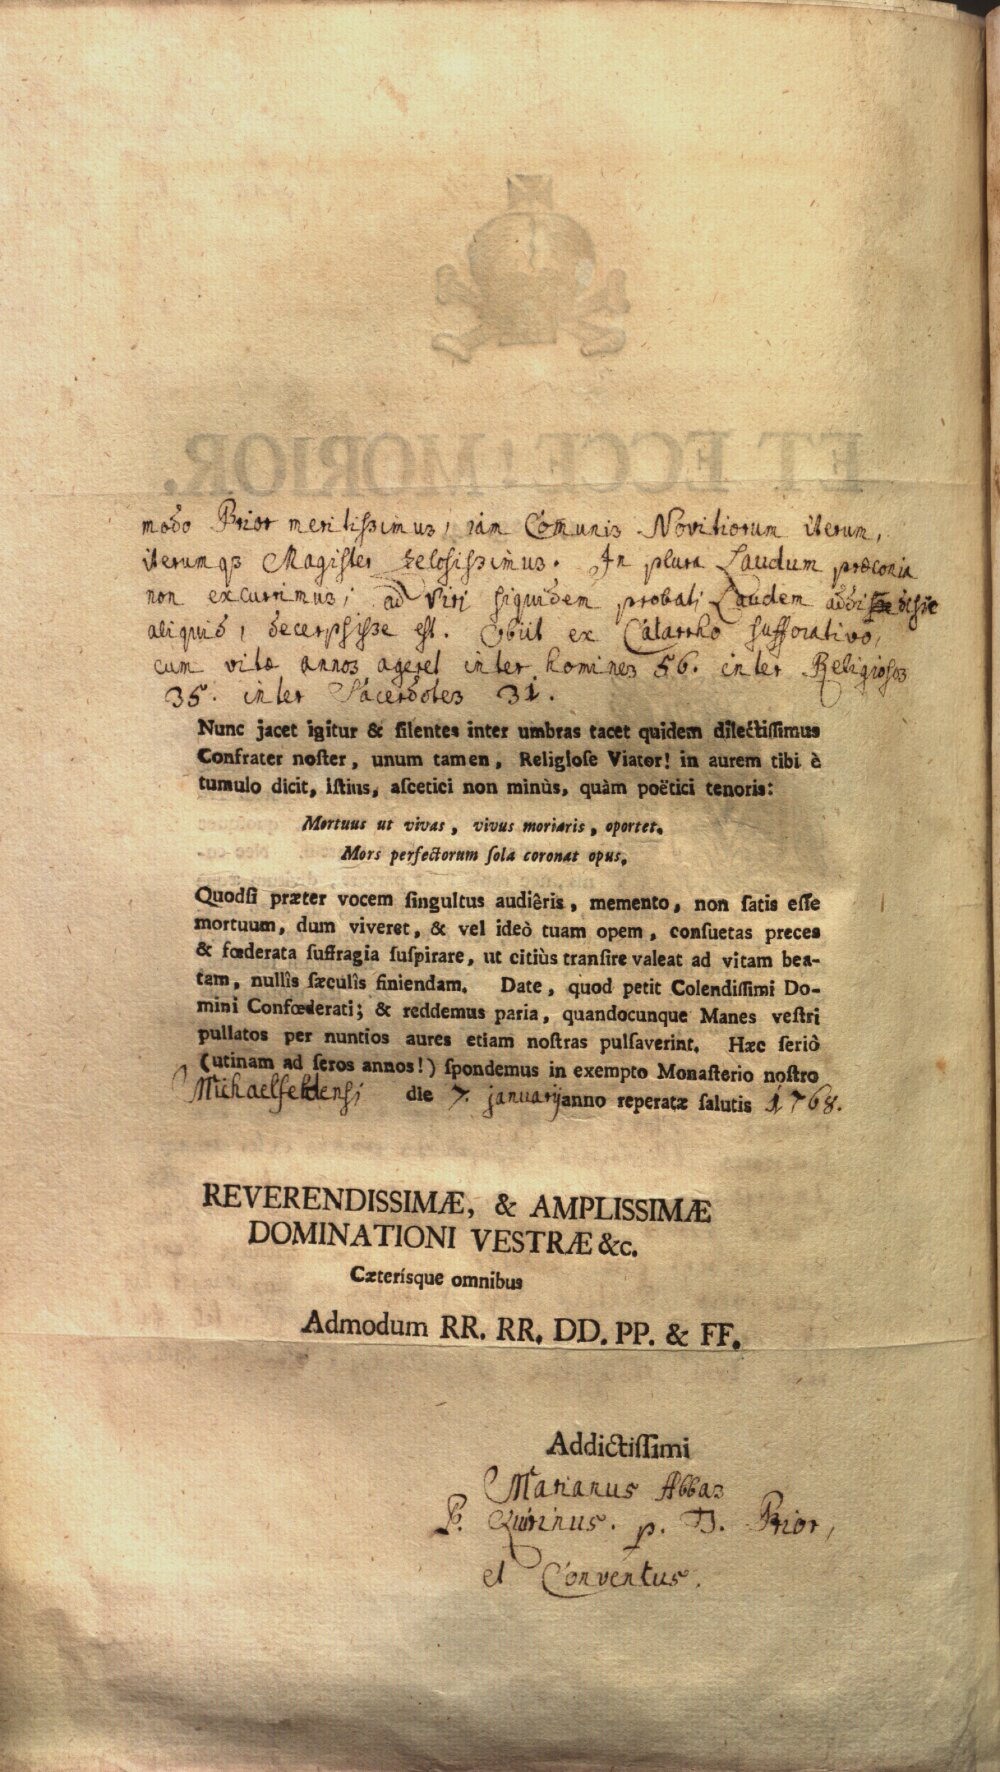 ET ECCE! MORIOR.
modo Prior meritissimus, iam Comunis Novitiorum iterum,
iterumqꝫ Magister zelosissimus. In plura Laudum præconia
non excurrimus; ad Viri siquidem probati Laudem
aliquid, decerpsisse est. Obiit ex Catarrho suffocativo,
cum vitæ annos ageret inter homines 56. inter Religiosos
35. inter Sacerdotes 31.
Nunc jacet igitur & ſilentes inter umbras tacet quidem dilectiſſimus
Confrater noſter, unum tamen, Religioſe Viator! in aurem tibi è
tumulo dicit, iſtius, aſcetici non minùs, quàm poëtici tenoris:
Mortuus ut vivas, vivus moriaris, oportet.
Mors perfectorum ſola coronat opus.
Quodſi præter vocem ſingultus audiêris, memento, non ſatis eſſe
mortuum, dum viveret, & vel ideò tuam opem, conſuetas preces
& fœderata ſuffragia ſuſpirare, ut citiùs tranſire valeat ad vitam bea-
tam, nullîs ſæculîs finiendam. Date, quod petit Colendiſſimi Do-
mini Confœderati; & reddemus paria, quandocunque Manes veſtri
pullatos per nuntios aures etiam noſtras pulſaverint. Hæc ſeriò
(utinam ad ſeros annos!) ſpondemus in exempto Monaſterio noſtro
Michaelfeldensi die 7. januarij anno reperatæ ſalutis 1768.
REVERENDISSIMÆ, & AMPLISSIMÆ
DOMINATIONI VESTRÆ &c.
Cæterísque omnibus
Admodum RR. RR. DD. PP. & FF.
Addictiſſimi
Marianus Abbas
P. Quirinus. p. t. Prior,
et Conventus.